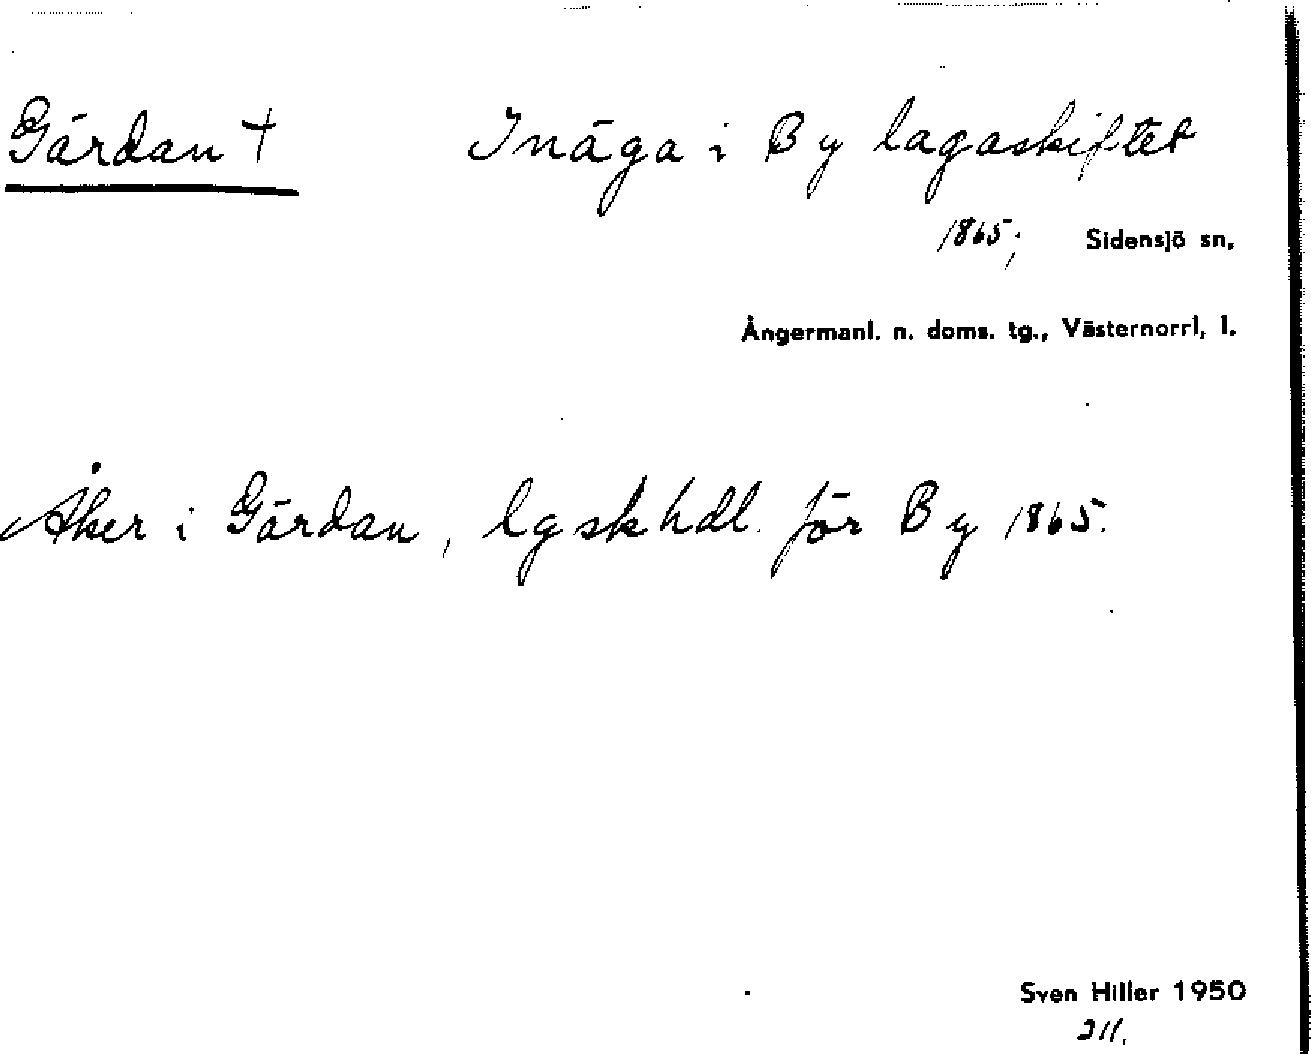 Gärdan † Inäga i By lagaskiftet
1865; Sidensjö sn,
Ångermanl. n. doms. tg., Västernorrl. l.
Åker i Gärdan, lgskhdl. för By 1865.
Sven Hiller 1950
211.